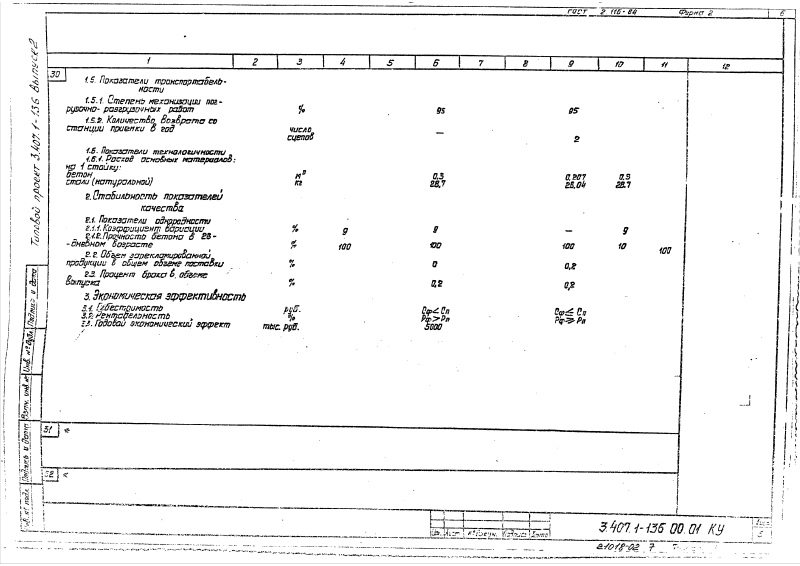 ГОСТ 2.116-84 Форма 2 6
1 2 3 4 5 6 7 8 9 10 11 12
30
1.5. Показатели транспортабель-
ности
1.5.1. Степень механизации пог-
рузочно-разгрузочных работ % 95 95
1.5.2. Количество возврата со
станции приемки в год число — 2
сцепов
1.6. Показатели технологичности
1.6.1. Расход основных материалов:
на 1 стойку:
бетон м³ 0,3 0,207 0,3
стали (натуральной) кг 28,7 26,04 28,7
2. Стабильность показателей
качества
2.1. Показатели однородности
2.1.1. Коэффициент вариации % 9 9 — 9
2.1.2. Прочность бетона в 28-
-дневном возрасте % 100 100 100 10 100
2.2. Объем зарекламированной
продукции в общем объеме поставки % 0 0,2
2.3. Процент брака в объеме
выпуска % 0,2 0,2
3. Экономическая эффективность
3.1. Себестоимость руб. Сф≤Сп Сф≤Сп
3.2. Рентабельность % Рф>Рп Рф≥Рп
3.3. Годовой экономический эффект тыс. руб. 5000
31
32
Типовой проект 3.407.1-136 Выпуск 2
Подпись и дата
Инв. № дубл.
Взам. инв. №
Подпись и дата
Инв. № подл.
Изм. Лист № докум. Подпись Дата
3.407.1-136 00.01 КУ
Лист
5
21018-02 7